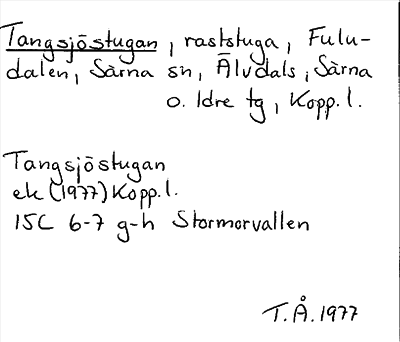 Tangsjöstugan, raststuga, Fulu-
dalen, Särna sn, Älvdals, Särna
o. Idre tg, Kopp.l.
Tangsjöstugan
ek (1977) Kopp.l.
15C 6-7 g-h Stormorvallen
T.Å.1977